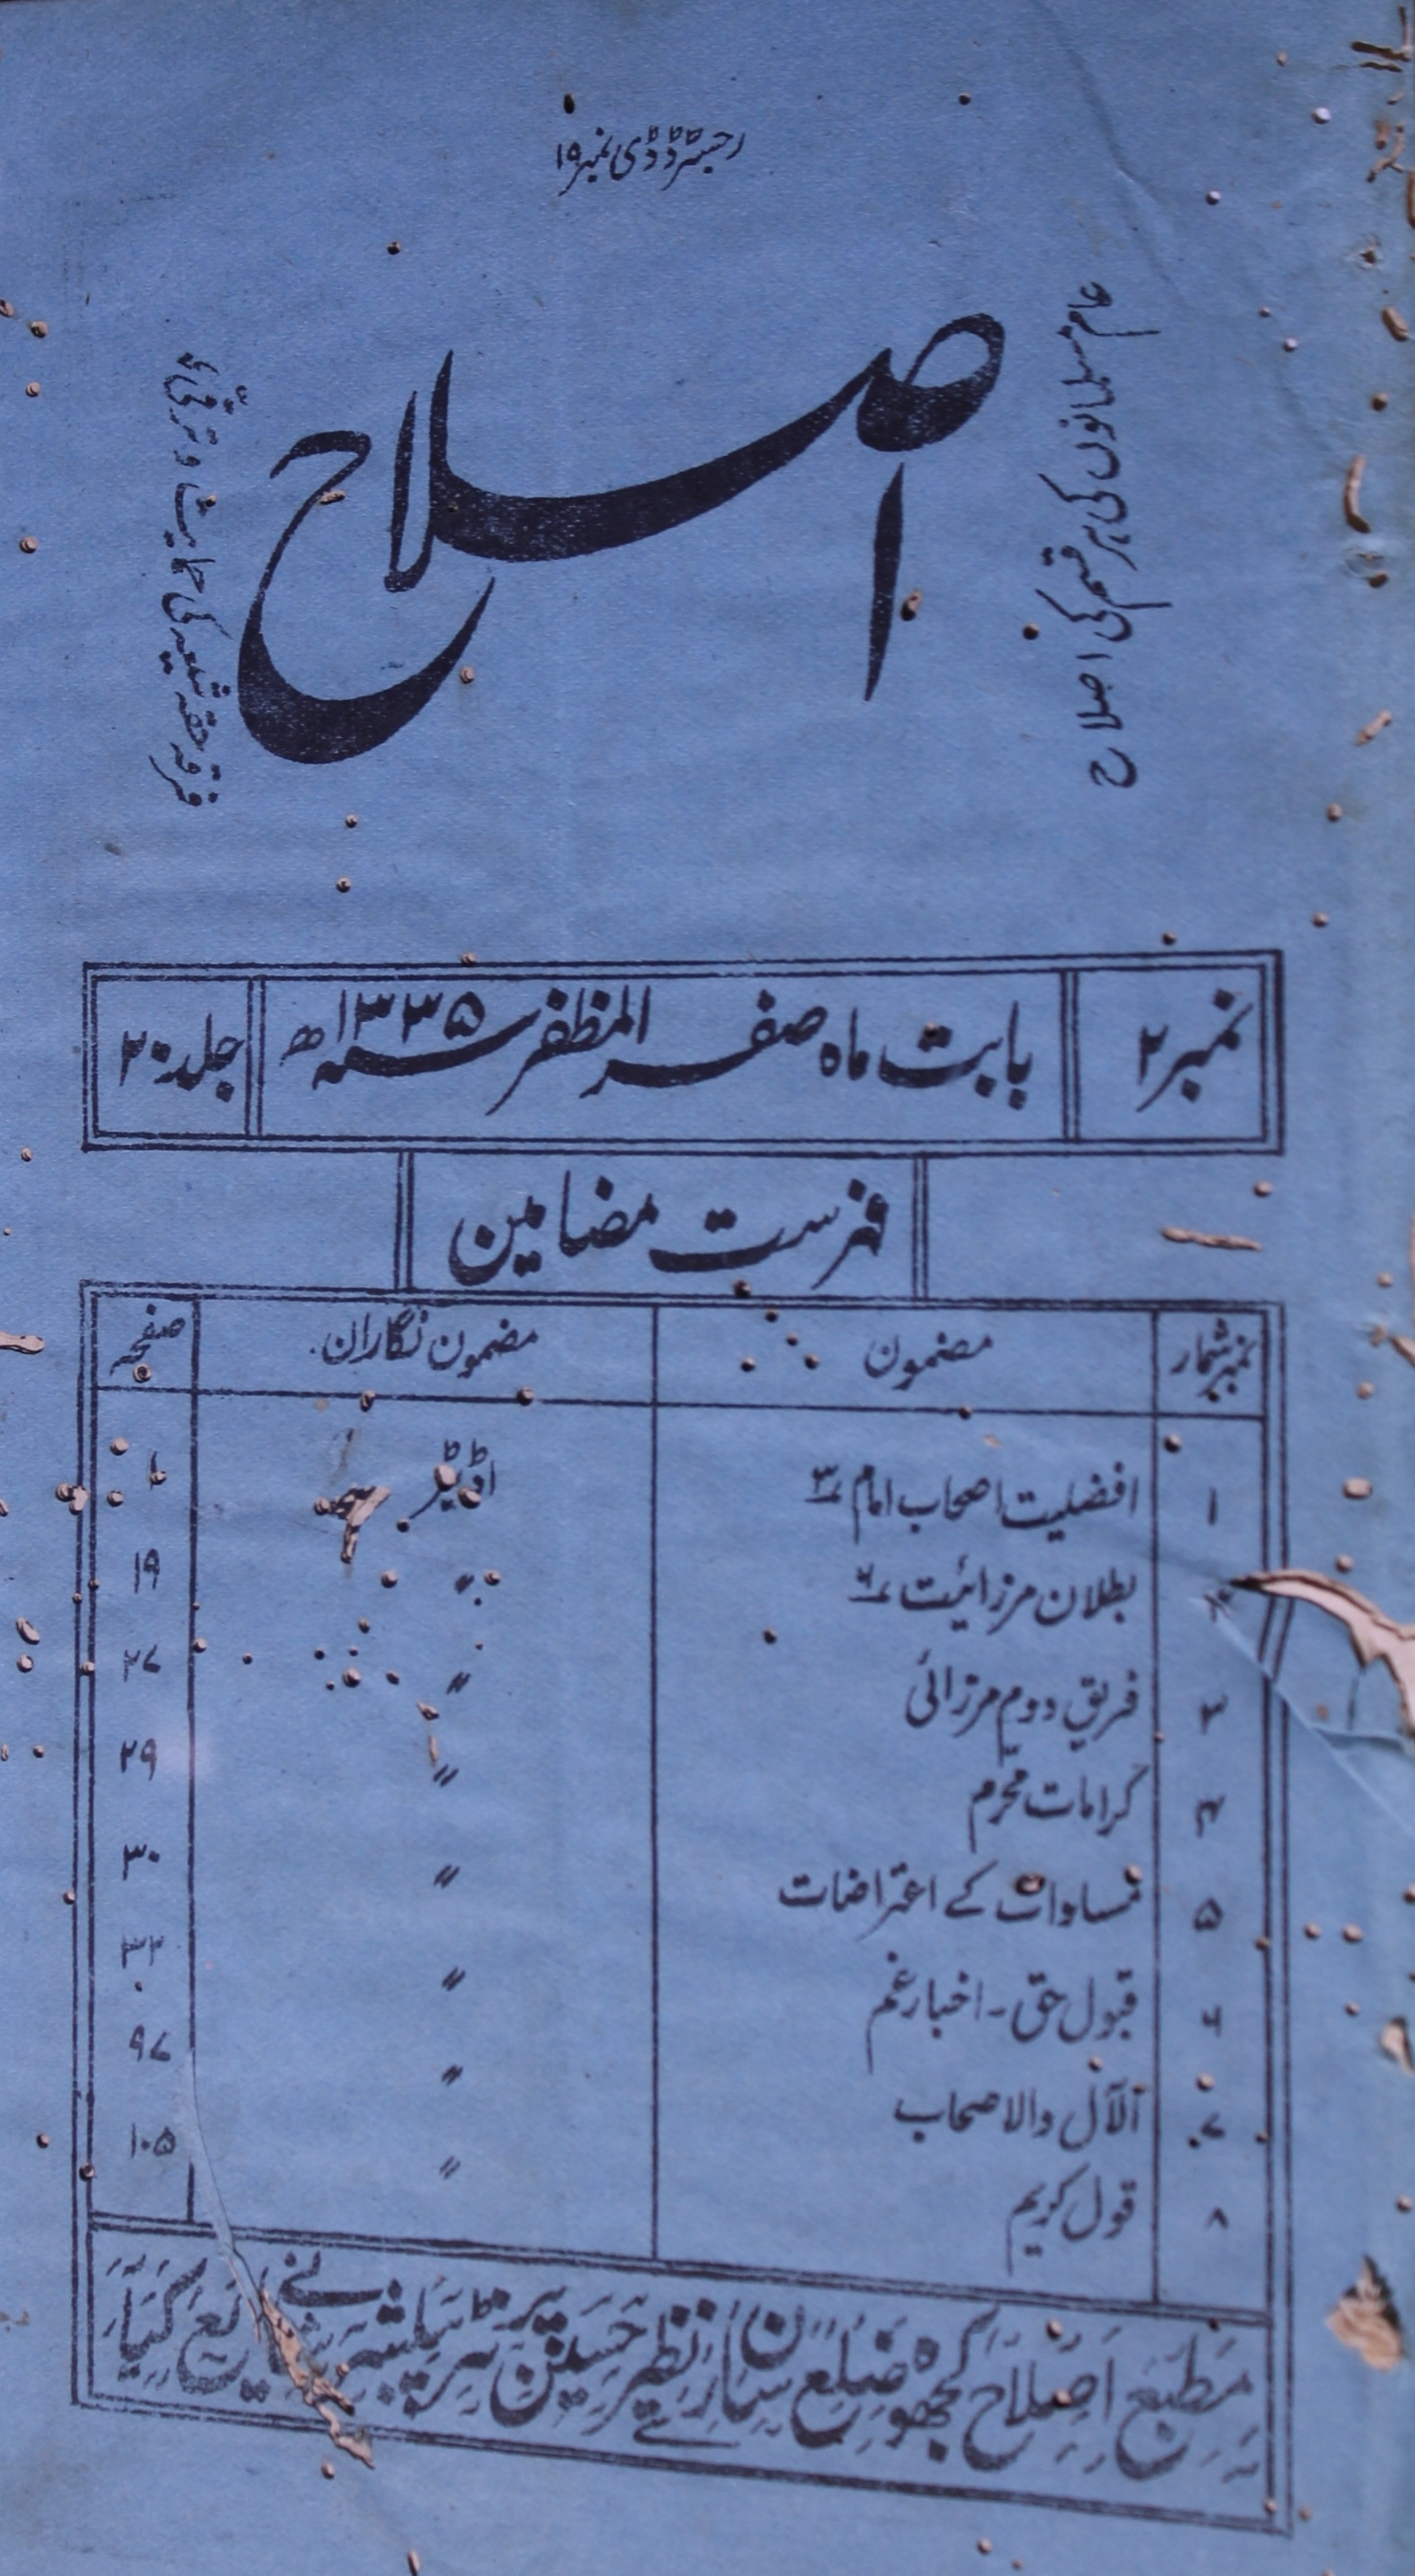 رجسٹرڈ ڈی نمبر ۱۹
عام مسلمانوں کی ہر قسم کی اصلاح
اصلاح
فرقہ حقہ شیعہ کی حمایت و ترقی
نمبر ۲ بابت ماہ صفر المظفر سنہ ۱۳۳۵ھ جلد ۲۰
فہرست مضامین
نمبر شمار مضمون مضمون نگاران صفحہ
۱ افضلیت اصحاب امام ۳ اڈیٹر ۱
۲ بطلان مرزائیت ۶ 〃 ۱۹
۳ فریق دوم مرزائی 〃 ۲۷
۴ کرامات محرم 〃 ۲۹
۵ مساوات کے اعتراضات 〃 ۳۰
۶ قبول حق - اخبار غم 〃 ۳۲
۷ آلآل والاصحاب 〃 ۹۷
۸ قول کریم 〃 ۱۰۵
مطبع اصلاح کجھوہ ضلع سارن سے نظیر حسین پرنٹر پبلشر نے شایع کیا